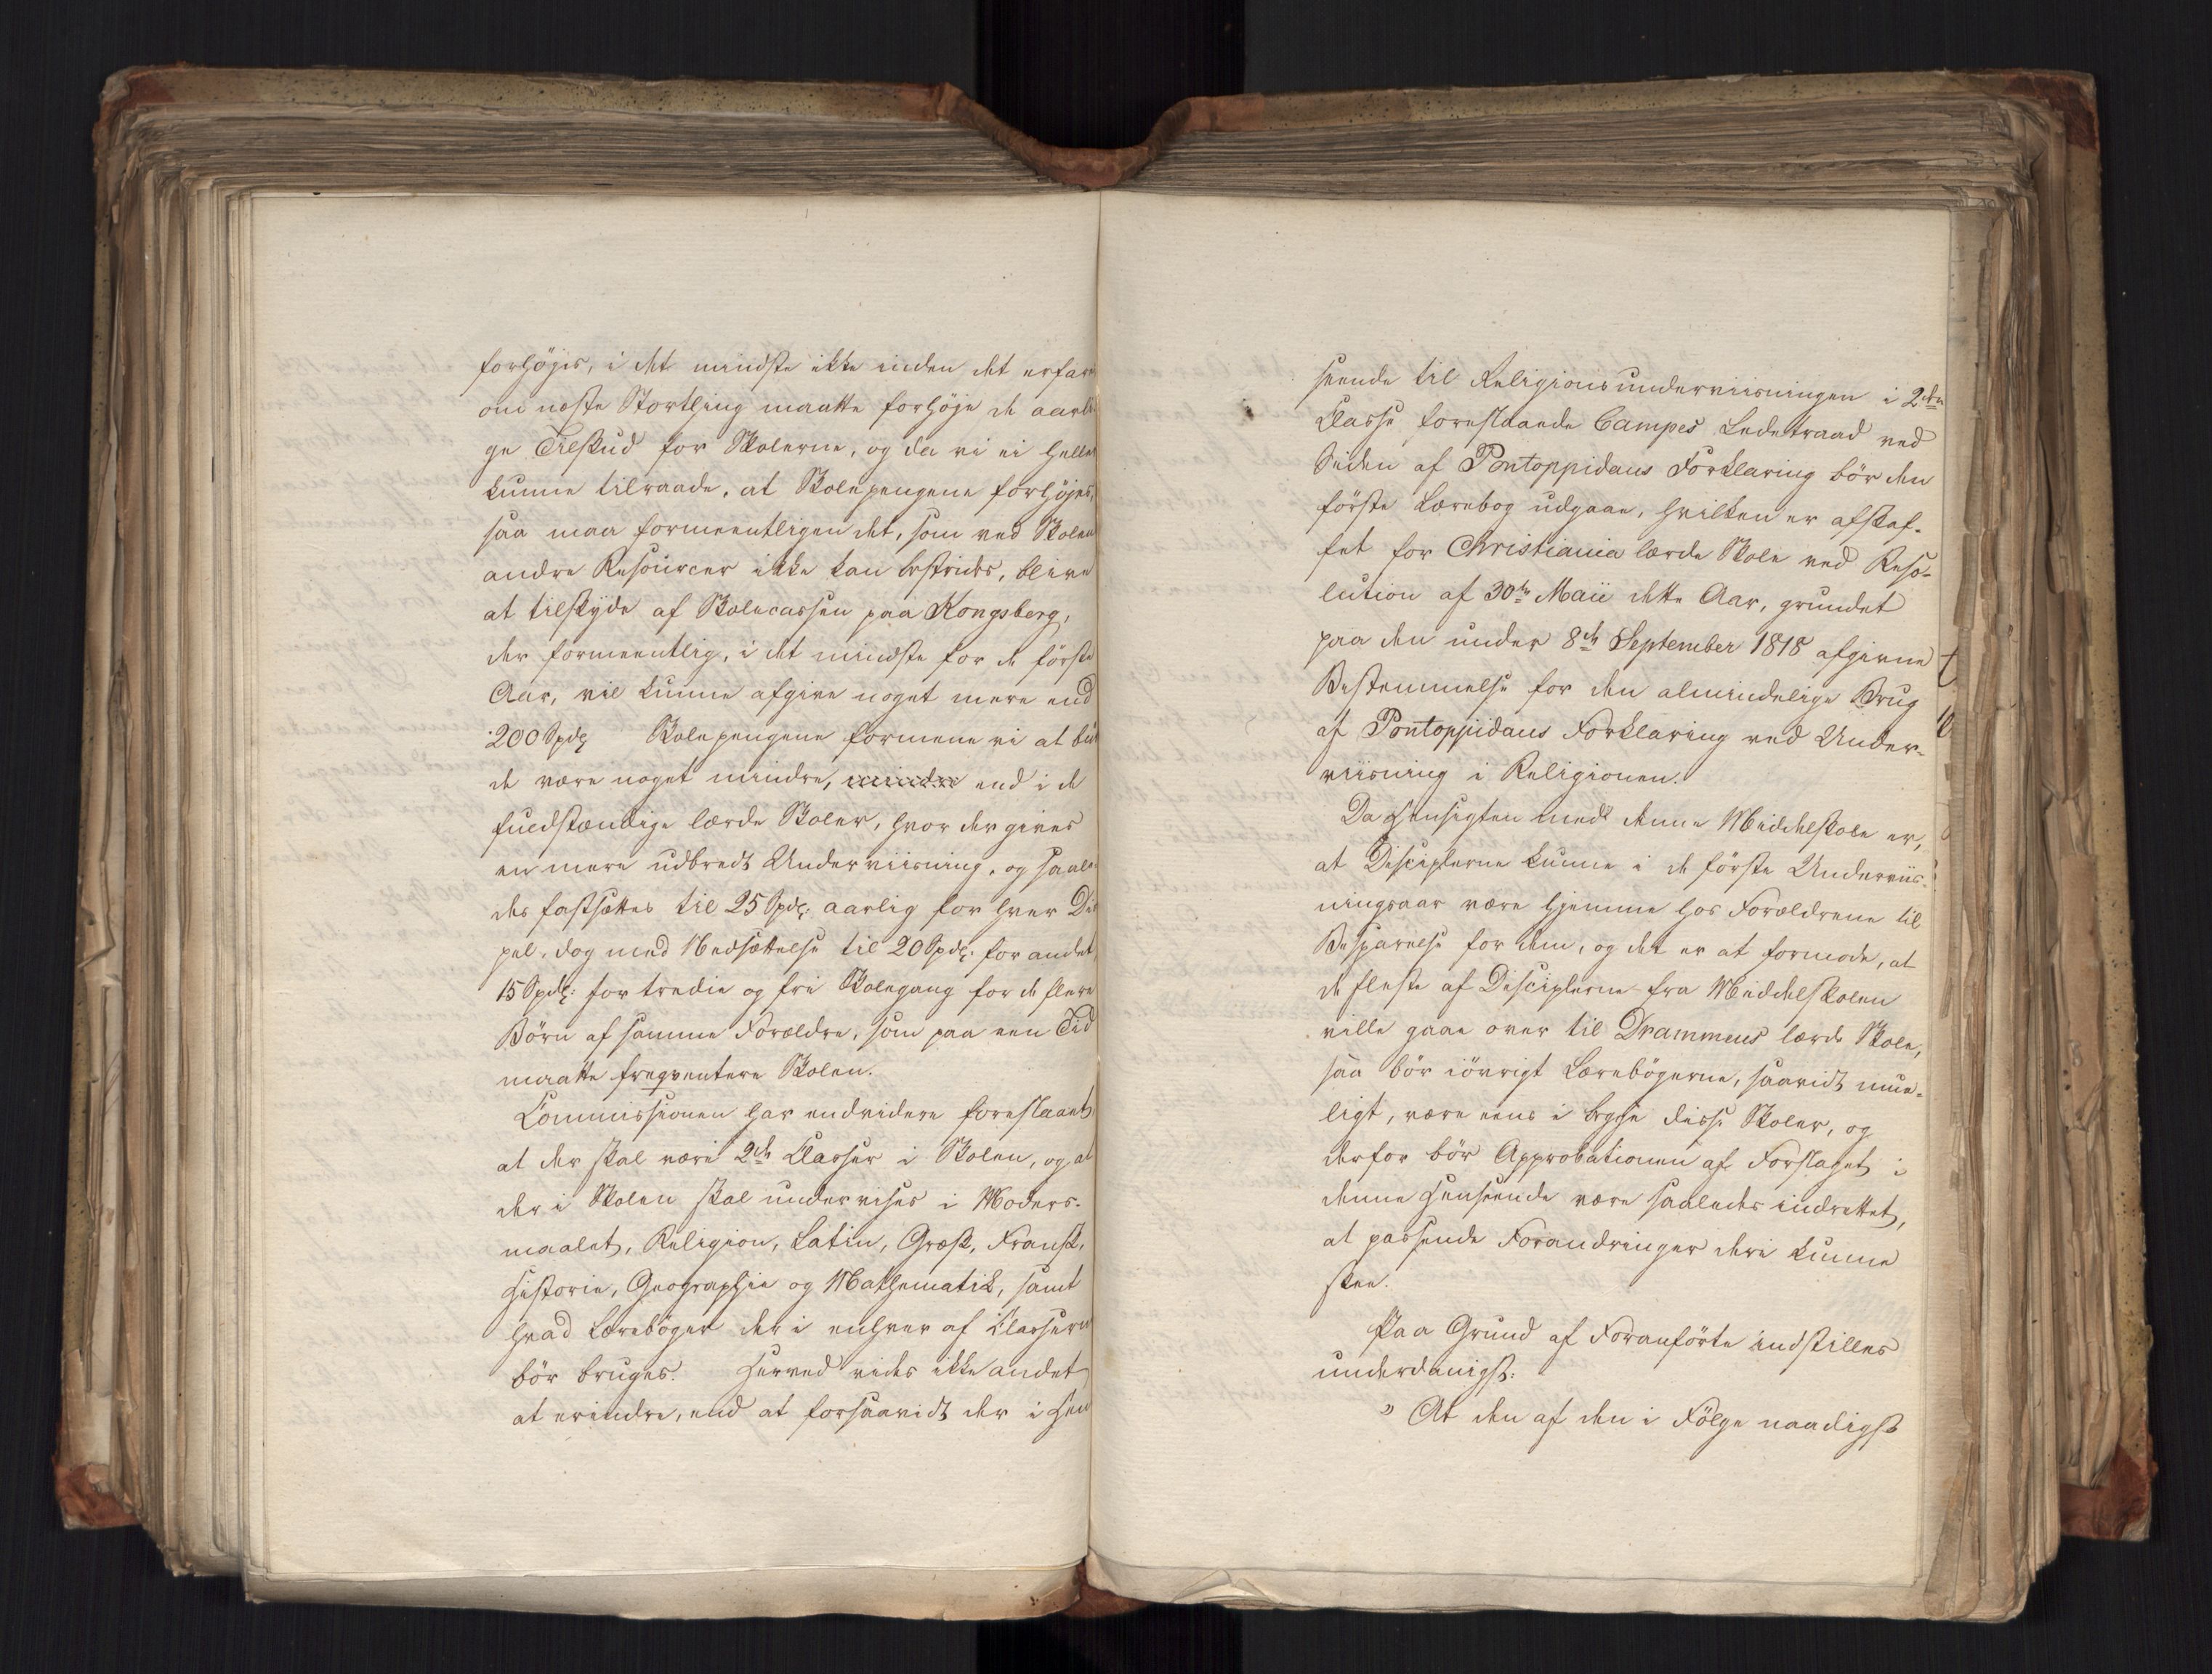 forhöjes, i det mindste ikke inden det erfar
om næste Storthing maatte forhöje de aarli
ge Tilskud for Skolerne, og da vi ei heller
kunne tilraade, at Skolepengene forhöjes,
saa maa formeentligen det, som ved Skolen
andre Resourcer ikke kan bestrides, blive
at tilskyde af Skolecassen paa Kongsberg,
der formeentlig, i det mindste for de förste
Aar, vil kunne afgive noget mere end
200 Spd. Skolepengene formene vi at bur
de være noget mindre, mindre end i de
fuldstændige lærde Skoler, hvor der gives
en mere udbredt Underviisning, og saale
des fastsættes til 25 Spd: aarlig for hver Di
pel, dog med Nedsættelse til 20 Spd: for andet,
15 Spd: for tredie og fri Skolegang for de flere
Börn af samme Forældre, som paa een Tid
maatte freqventere Skolen.
Commissionen har endvidere foreslaaet,
at der skal være 2de Classer i Skolen, og at
der i Skolen skal undervises i Moders-
maalet, Religion, Latin, Græsk, Fransk,
Historie, Geographie og Mathematik, samt
hvad Lærebøger der i enhver af Classerne
bör bruges. Herved vides ikke andet
at erindre, end at forsaavidt der i Hen
seende til Religionsunderviisningen i 2den
Classe foreslaaede Campes Ledetraad ved
Siden af Pontoppidans Forklaring bör den
förste Lærebog udgaae, hvilken er afskaf-
fet for Christiania lærde Skole ved Reso-
lution af 30te Maii dette Aar, grundet
paa den under 8de September 1818 afgivne
Bestemmelse for den almindelige Brug
af Pontoppidans Forklaring ved Under-
viisning i Religionen.
Da Hensigten med denne Middelskole er,
at Disciplerne kunne i de förste Underviis-
ningsaar være hjemme hos Forældrene til
Besparelse for dem, og det er at formode, at
de fleste af Disciplerne fra Middelskolen
ville gaae over til Drammens lærde Skole,
saa bör iövrigt Lærebögerne, saavidt mue-
ligt, være eens i begge disse Skoler, og
derfor bör Approbationen af Forslaget i
denne Henseende være saaledes indrettet,
at passende Forandringer deri kunne
skee.
Paa Grund af Foranförte indstilles
underdanigst:
" At den af den i Fölge naadigst